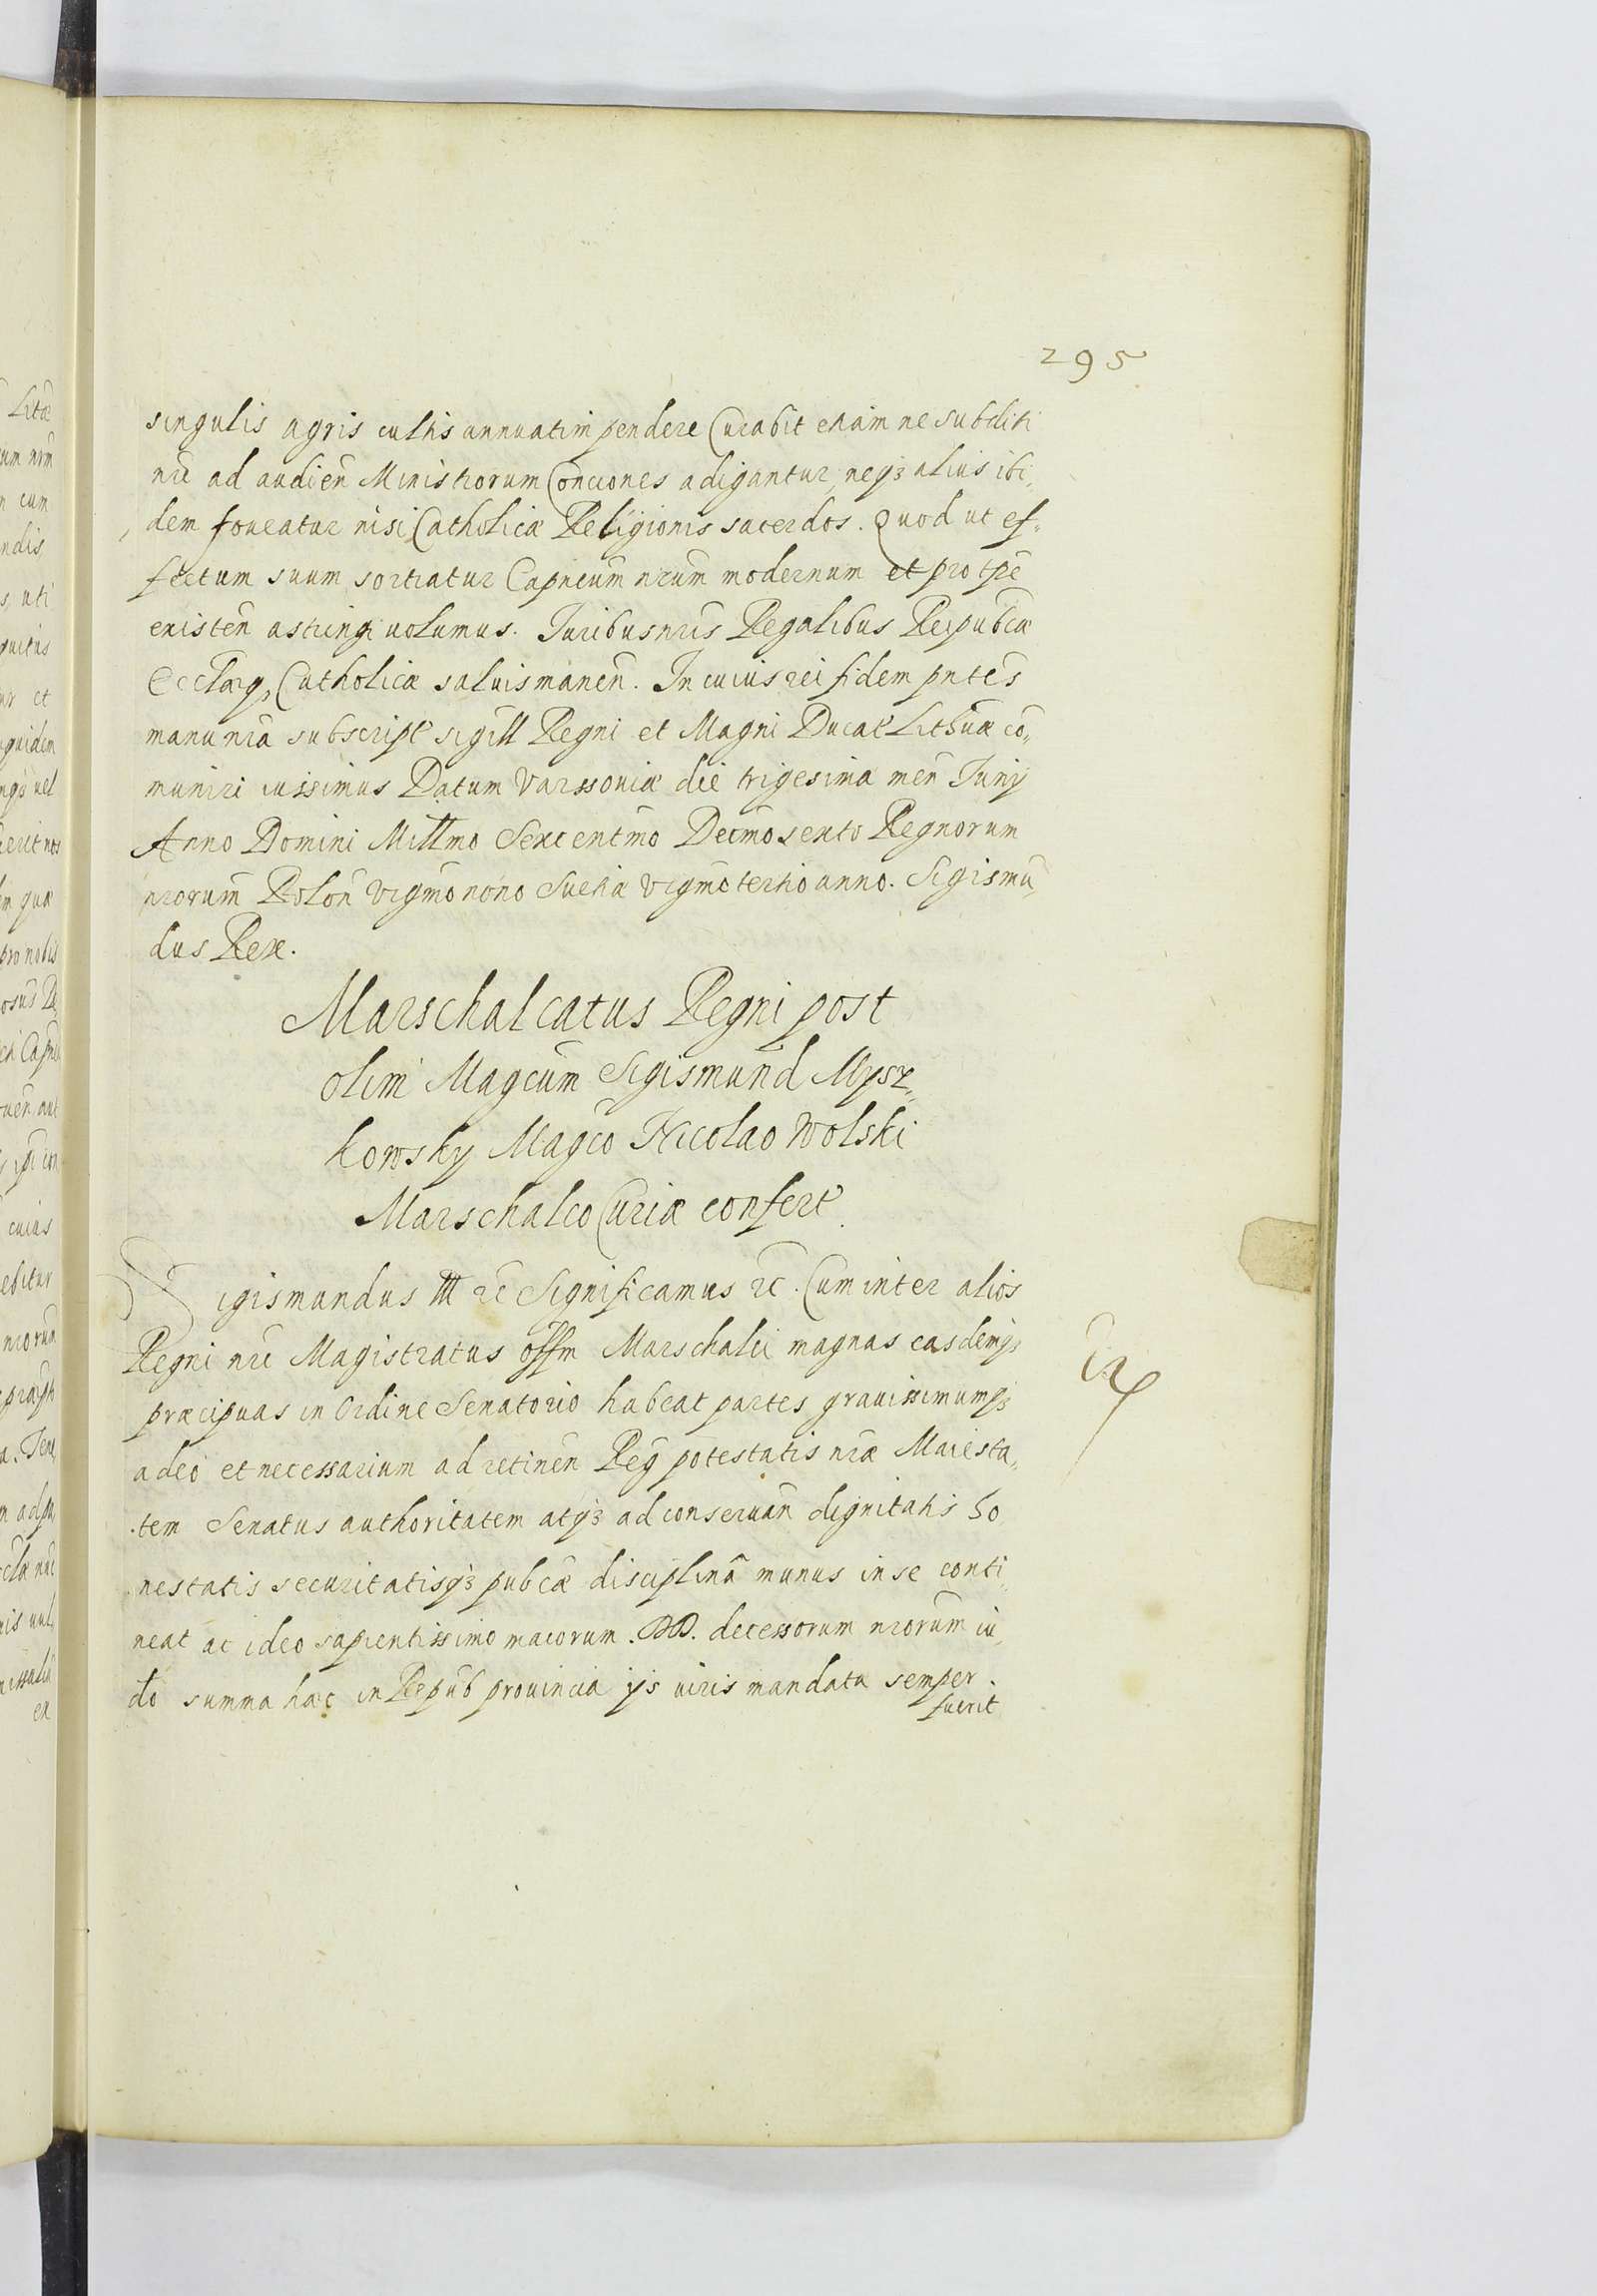 295
singulis agris cultis annuatim pendere Curabit etiam ne subditi
nri ad audien Ministrorum Conciones adigantur, neqz alius ibi„
dem foueatur nisi Catholicæ Religionis sacerdos. Quod ut ef„
fectum suum sortiatur Capneum nrum modernum et pro tpe
existen astringi uolumus. Iuribus nris Regalibus Reipubcæ
Ecclæq, Catholicæ saluis manen. In cuius rei fidem pntes
manu nra subscript sigill Regni et Magni Ducat Lithuæ co„
muniri iussimus Datum Varssouiæ die trigesima men Iunij
Anno Domini Millmo Sexcentmo Decmosexto Regnorum
nrorum Polon vigmonono Suetiæ vigmotertio anno. Sigismu„
dus Rex.
Marschalcatus Regni post
olim Magcum Sigismund Mysz„
kowsky Magco Nicolao Wolski
Marschalco Curiæ confert.
Sigismundus III rc Significamus rc. Cum inter alios
Regni nri Magistratus offm Marschalci magnas easdemqz
præcipuas in Ordine Senatorio habeat partes grauissimumqz
adeo et necessarium ad retinen Reg potestatis nræ Maiesta„
tem Senatus authoritatem atqz ad conseruan dignitatis ho
nestatis securitatisqz pubcæ disciplinâ munus in se conti„
neat ac ideo sapientissimo maiorum. DD. decessorum nrorum iu„
dō summa hæc in Repub prouincia ijs uiris mandata semper
fuerit
Litæ
cum
ndis
uti
et
quidem
uel
quæ
pro nobis
cuius